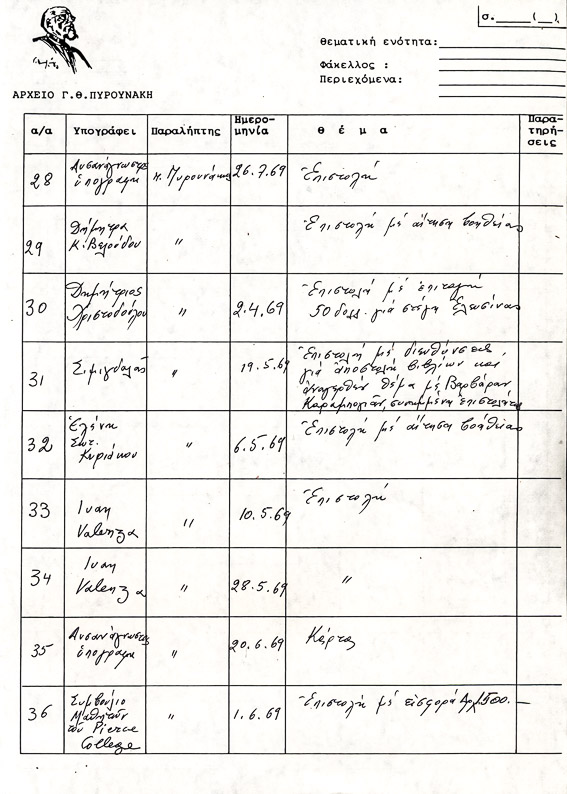 σ.____(__).
Θεματική ενότητα:
Φάκελλος :
Περιεχόμενα:
ΑΡΧΕΙΟ Γ.Θ.ΠΥΡΟΥΝΑΚΗ
α/α Υπογράφει Παραλήπτης Ημερομηνία θ έ μ α Παρατηρήσεις
28 Δυσανάγνωστη ὑπογραφή π. Πυρουνάκης 26.7.69 Ἐπιστολή
29 Δήμητρα Κ. Βελούδου " Ἐπιστολή μέ αἴτηση βοηθείας
30 Δημήτριος Χριστοδούλου " 2.4.69 Ἐπιστολή μέ ἐπιταγή
50 δολλ. γιά στέγη Ἐλευσίνας
31 Σιμιγδαλᾶς " 19.5.69 Ἐπιστολή μέ διευθύνσεις,
γιά ἀποστολή βιβλίων και
θέμα μέ Βαρβάραν
32 Ἑλένη Σωτ. Κυριάκου " 6.5.69 Ἐπιστολή μέ αἴτηση βοήθειας
33 Ivan Valenza " 10.5.69 Ἐπιστολή
34 Ivan Valenza " 28.5.69 "
35 Δυσανάγνωστος ὑπογραφή " 20.6.69 Κάρτα
36 Συμβούλιο Μαθητῶν τοῦ Pierce College " 1.6.69 Ἐπιστολή μέ εἰσφορά Δρχ 500.—